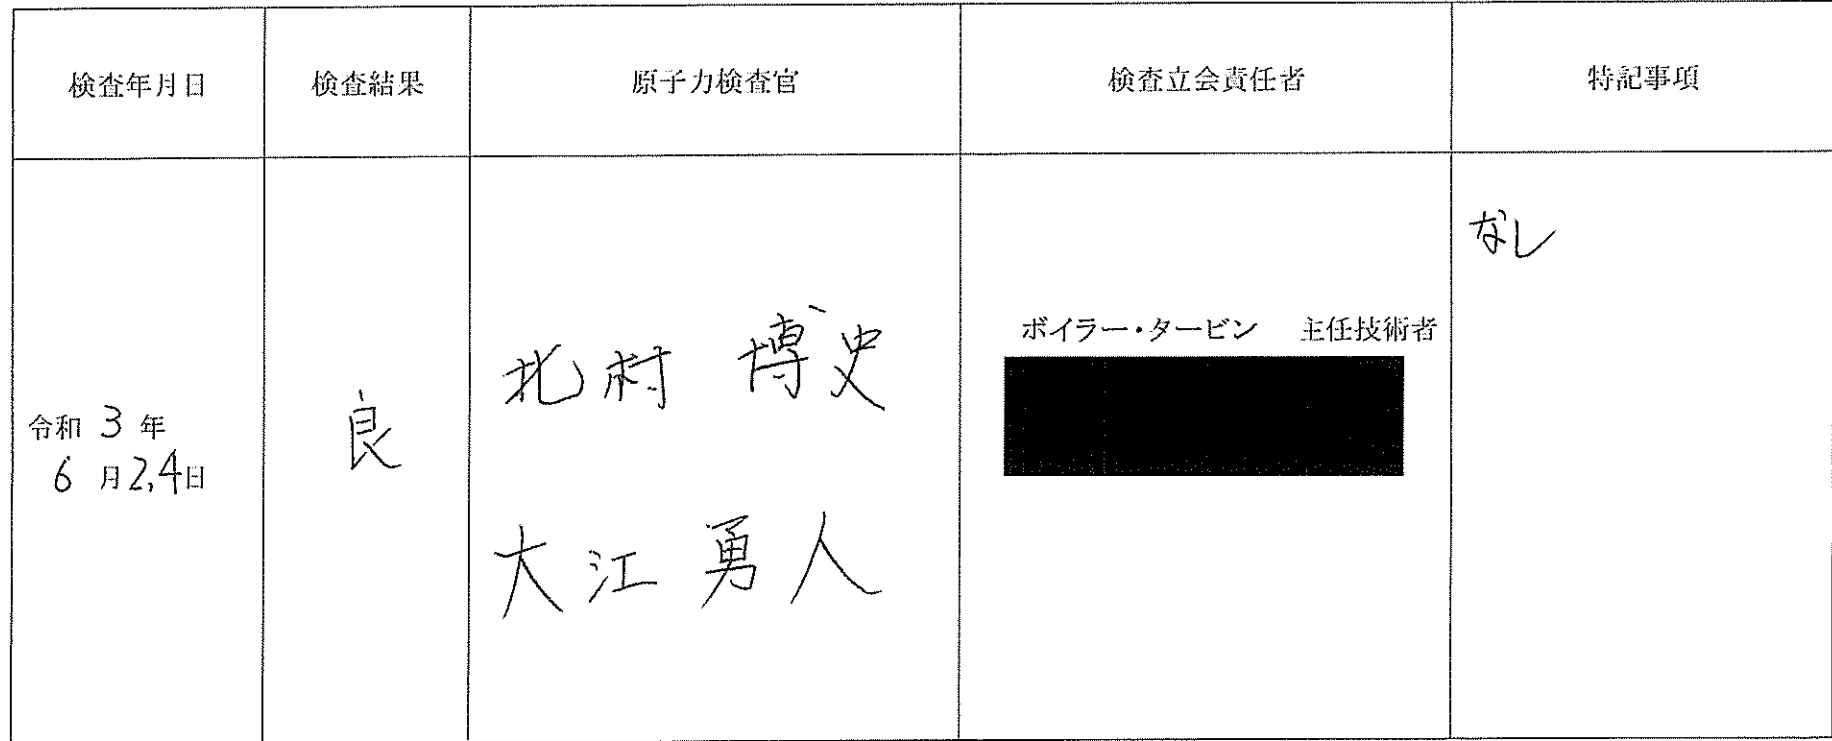 検査年月日
検査結果
原子力検査官
検査立会責任者
特記事項
令和 3 年
6 月24日
良
北村 博史
大江 勇人
ボイラー・タービン 主任技術者
なし